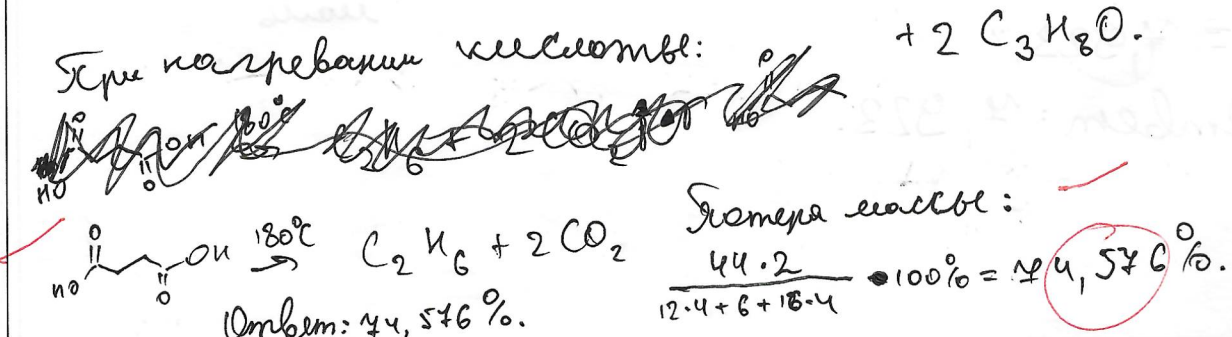 + 2 C₃H₈O.
При нагревании кислоты:
HO O O OH 180°C → C₂H₆ + 2 CO₂
Потеря массы:
44·2 / 12·4+6+16·4 · 100% = 74,576%.
Ответ: 74,576%.